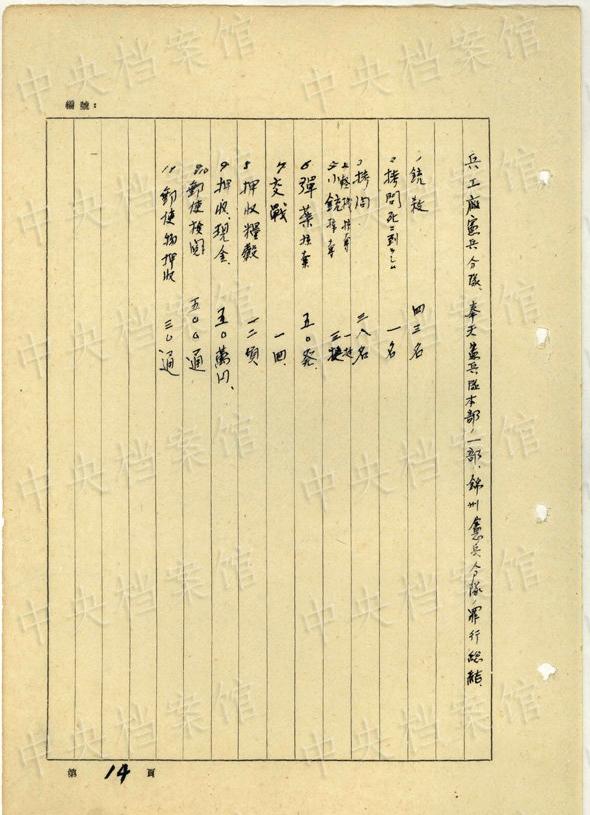 編號：
兵工廠憲兵分隊、奉天憲兵隊本部ノ一部、錦州憲兵分隊ノ罪行総結、
1 銃殺 四三名
2 拷問死ニ到ラシム 一名
3 拷問 三八名
一挺
5 小銃 三挺
6 弾薬 五〇発
7 交戦 一回
8 押收糧穀 一二頓
9 押收現金 五〇萬円、
10 郵便検閲 五〇〇通
11 郵便物押收 三〇通
第 14 頁
中央档案馆